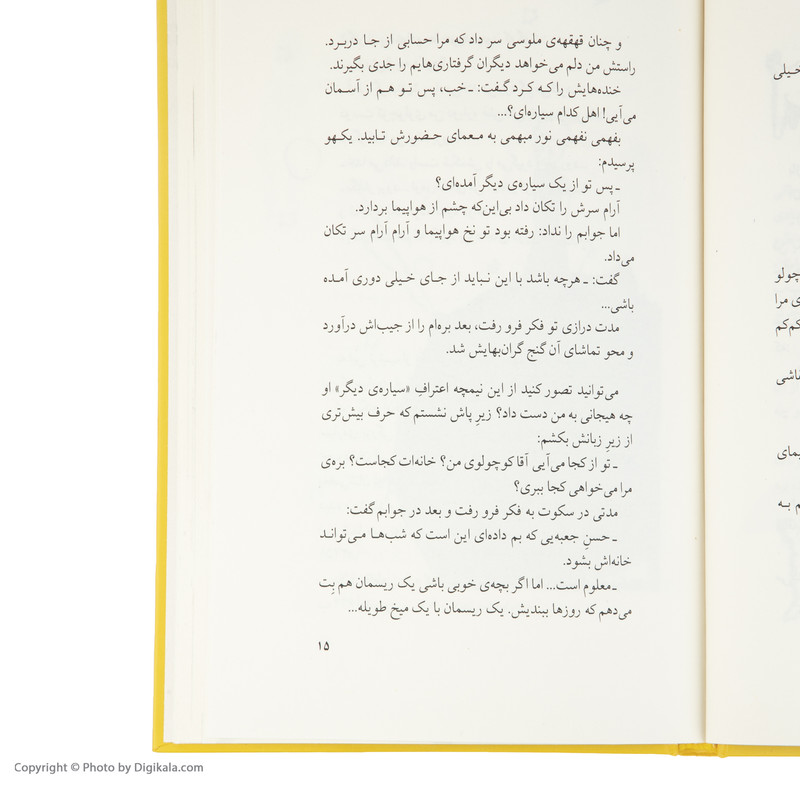 و چنان قهقهه‌ی ملوسی سر داد که مرا حسابی از جا دربرد.
راستش من دلم می‌خواهد دیگران گرفتاری‌هایم را جدی بگیرند.
خنده‌هایش را که کرد گفت: ـ خب، پس تو هم از آسمان
می‌آیی! اهل کدام سیاره‌ای؟...
بفهمی نفهمی نور مبهمی به معمای حضورش تابید. یکهو
پرسیدم:
ـ پس تو از یک سیاره‌ی دیگر آمده‌ای؟
آرام سرش را تکان داد بی‌این‌که چشم از هواپیما بردارد.
اما جوابم را نداد: رفته بود تو نخ هواپیما و آرام آرام سر تکان
می‌داد.
گفت: ـ هرچه باشد با این نباید از جای خیلی دوری آمده
باشی...
مدت درازی تو فکر فرو رفت، بعد بره‌ام را از جیب‌اش درآورد
و محو تماشای آن گنج گران‌بهایش شد.
می‌توانید تصور کنید از این نیمچه اعترافِ «سیاره‌ی دیگر» او
چه هیجانی به من دست داد؟ زیرِ پاش نشستم که حرف بیش‌تری
از زیرِ زبانش بکشم:
ـ تو از کجا می‌آیی آقا کوچولوی من؟ خانه‌ات کجاست؟ بره‌ی
مرا می‌خواهی کجا ببری؟
مدتی در سکوت به فکر فرو رفت و بعد در جوابم گفت:
ـ حسنِ جعبه‌یی که بم داده‌ای این است که شب‌ها می‌تواند
خانه‌اش بشود.
ـ معلوم است... اما اگر بچه‌ی خوبی باشی یک ریسمان هم بِت
می‌دهم که روزها ببندیش. یک ریسمان با یک میخ طویله...
۱۵
خیلی
چولو
ی مرا
کم‌کم
قاشی
یمای
م به
Copyright © Photo by Digikala.com